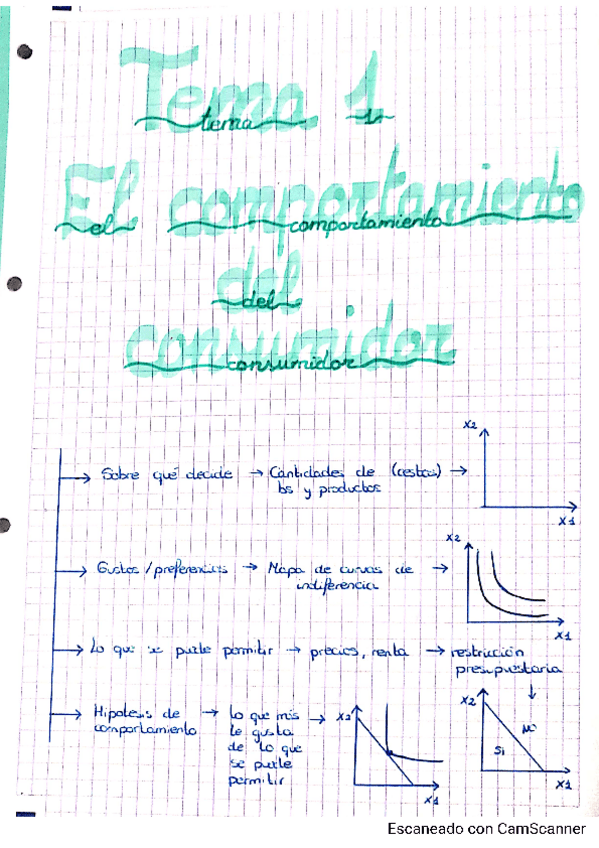 Tema 1
tema 1
El comportamiento
el comportamiento
del
del
consumidor
consumidor
Sobre qué decide → Cantidades de (cestas) →
bs y productos
X2
X1
Gustos / preferencias → Mapa de curvas de →
indiferencia
X2
X1
Lo que se puede permitir → precios, renta → restricción
presupuestaria
↓
Hipotesis de → Lo que más →
comportamiento le gusta
de lo que
se puede
permitir
X2
X1
X2
NO
Si
X1
Escaneado con CamScanner